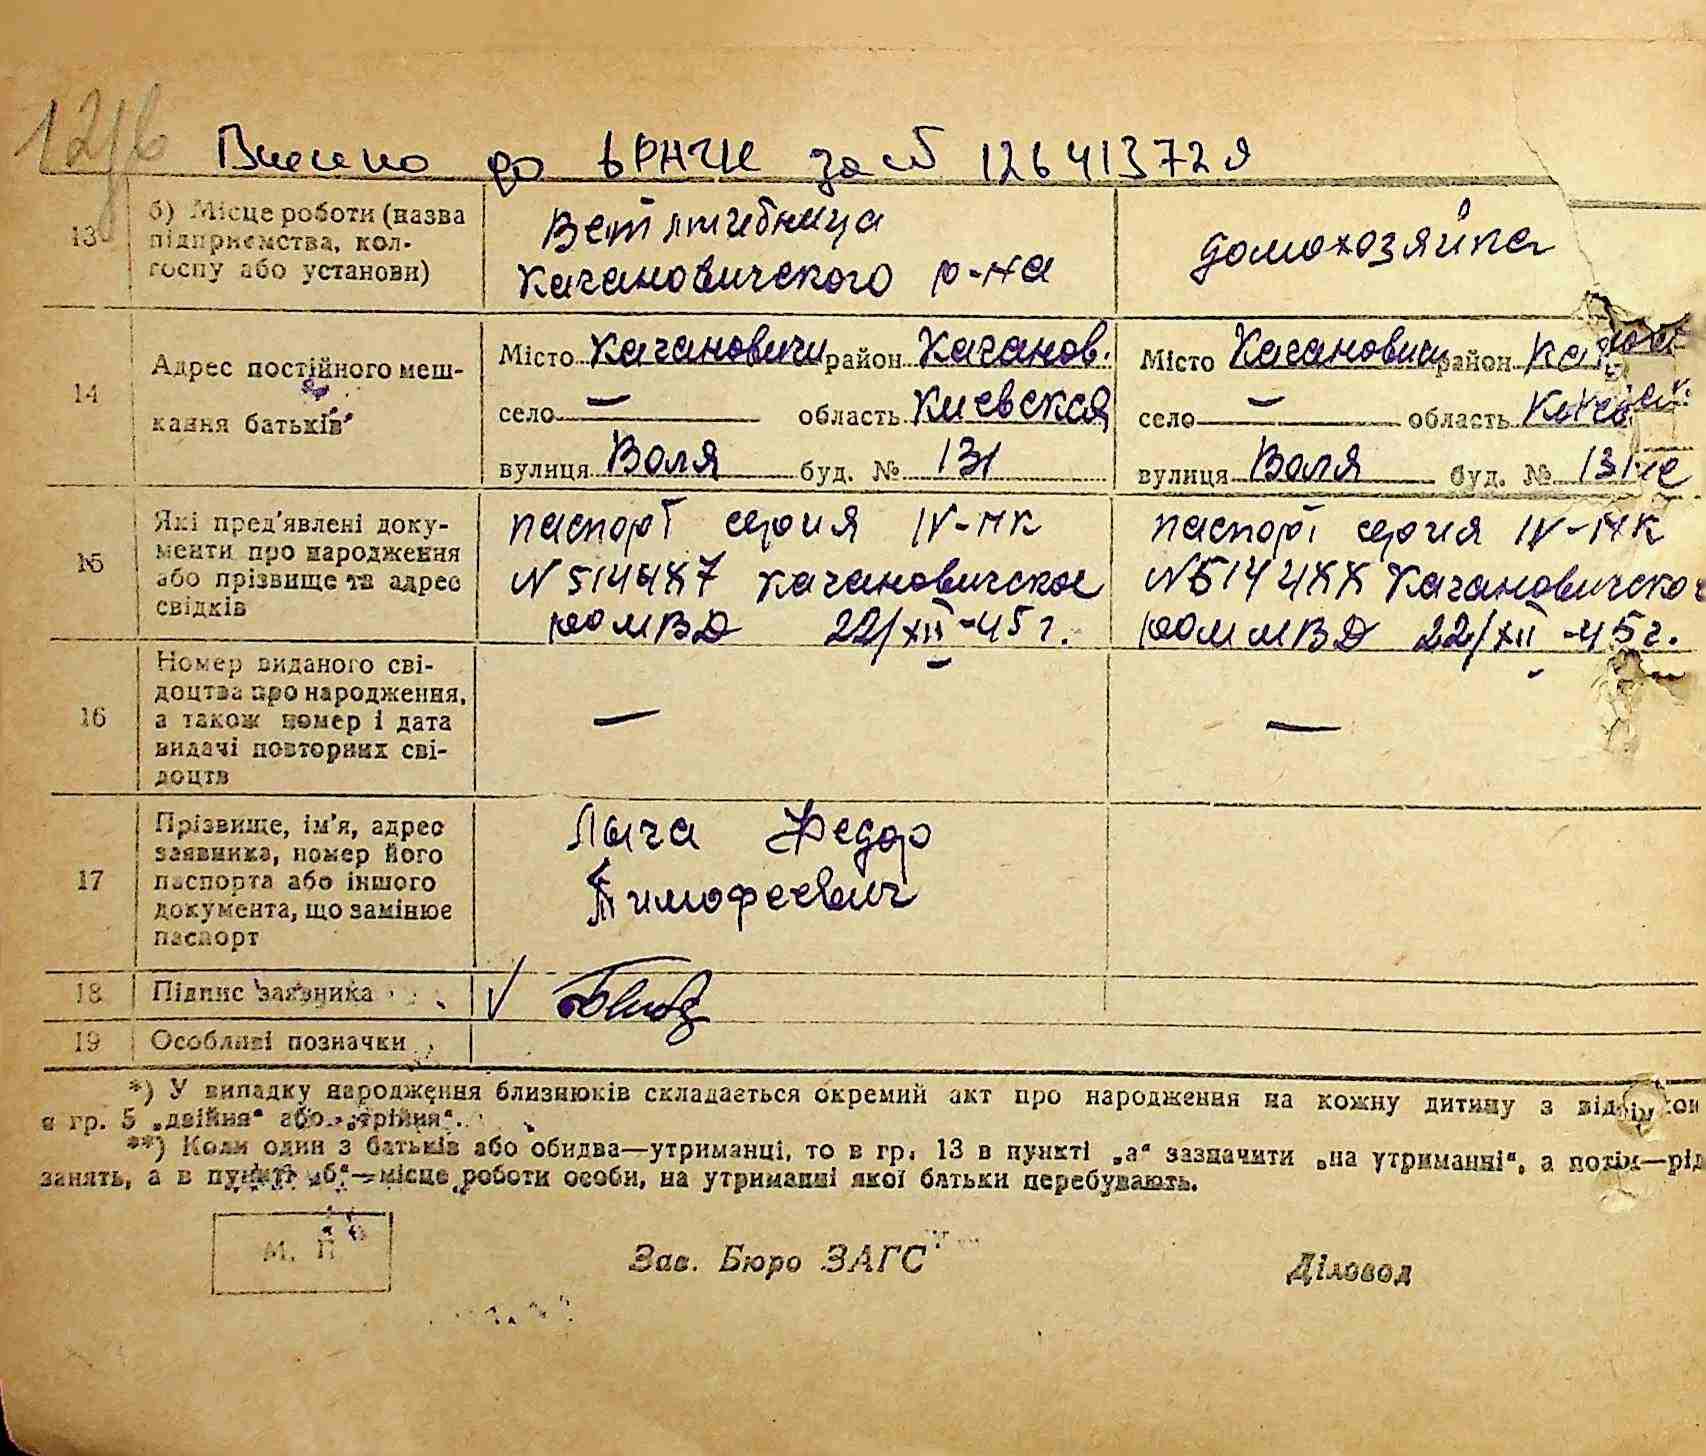 126
Внесено до ДРАЦС за № 126413729
13
б) Місце роботи (назва підприємства, колгоспу або установи)
Ветлічебница
Качановичского р-на
домохозяйка
14
Адрес постійного мешкання батьків
Місто Качановичи район Качанов.
село — область Киевская
вулиця Воля буд. № 131
Місто Качановичи район
село — область
вулиця Воля буд. № 131
15
Які пред'явлені документи про народження або прізвище та адрес свідків
паспорт серия IV-НК
N 514487 Качановичское
РОМВД 22/XII-45г.
паспорт серия IV-НК
N 514488 Качановичское
РОМ МВД 22/XII-45г.
16
Номер виданого свідоцтва про народження, а також номер і дата видачі повторних свідоцтв
—
—
17
Прізвище, ім'я, адрес заявника, номер його паспорта або іншого документа, що замінює паспорт
Лыча Федор
Тимофеевич
18
Підпис заявника
19
Особливі позначки
*) У випадку народження близнюків складається окремий акт про народження на кожну дитину з
в гр. 5 „двійня" або „трійня".
**) Коли один з батьків або обидва—утриманці, то в гр. 13 в пункті „а" зазначити „на утриманні", а потім—рід
занять, а в пункті „б"—місце роботи особи, на утриманні якої батьки перебувають.
М. П.
Зав. Бюро ЗАГС
Діловод